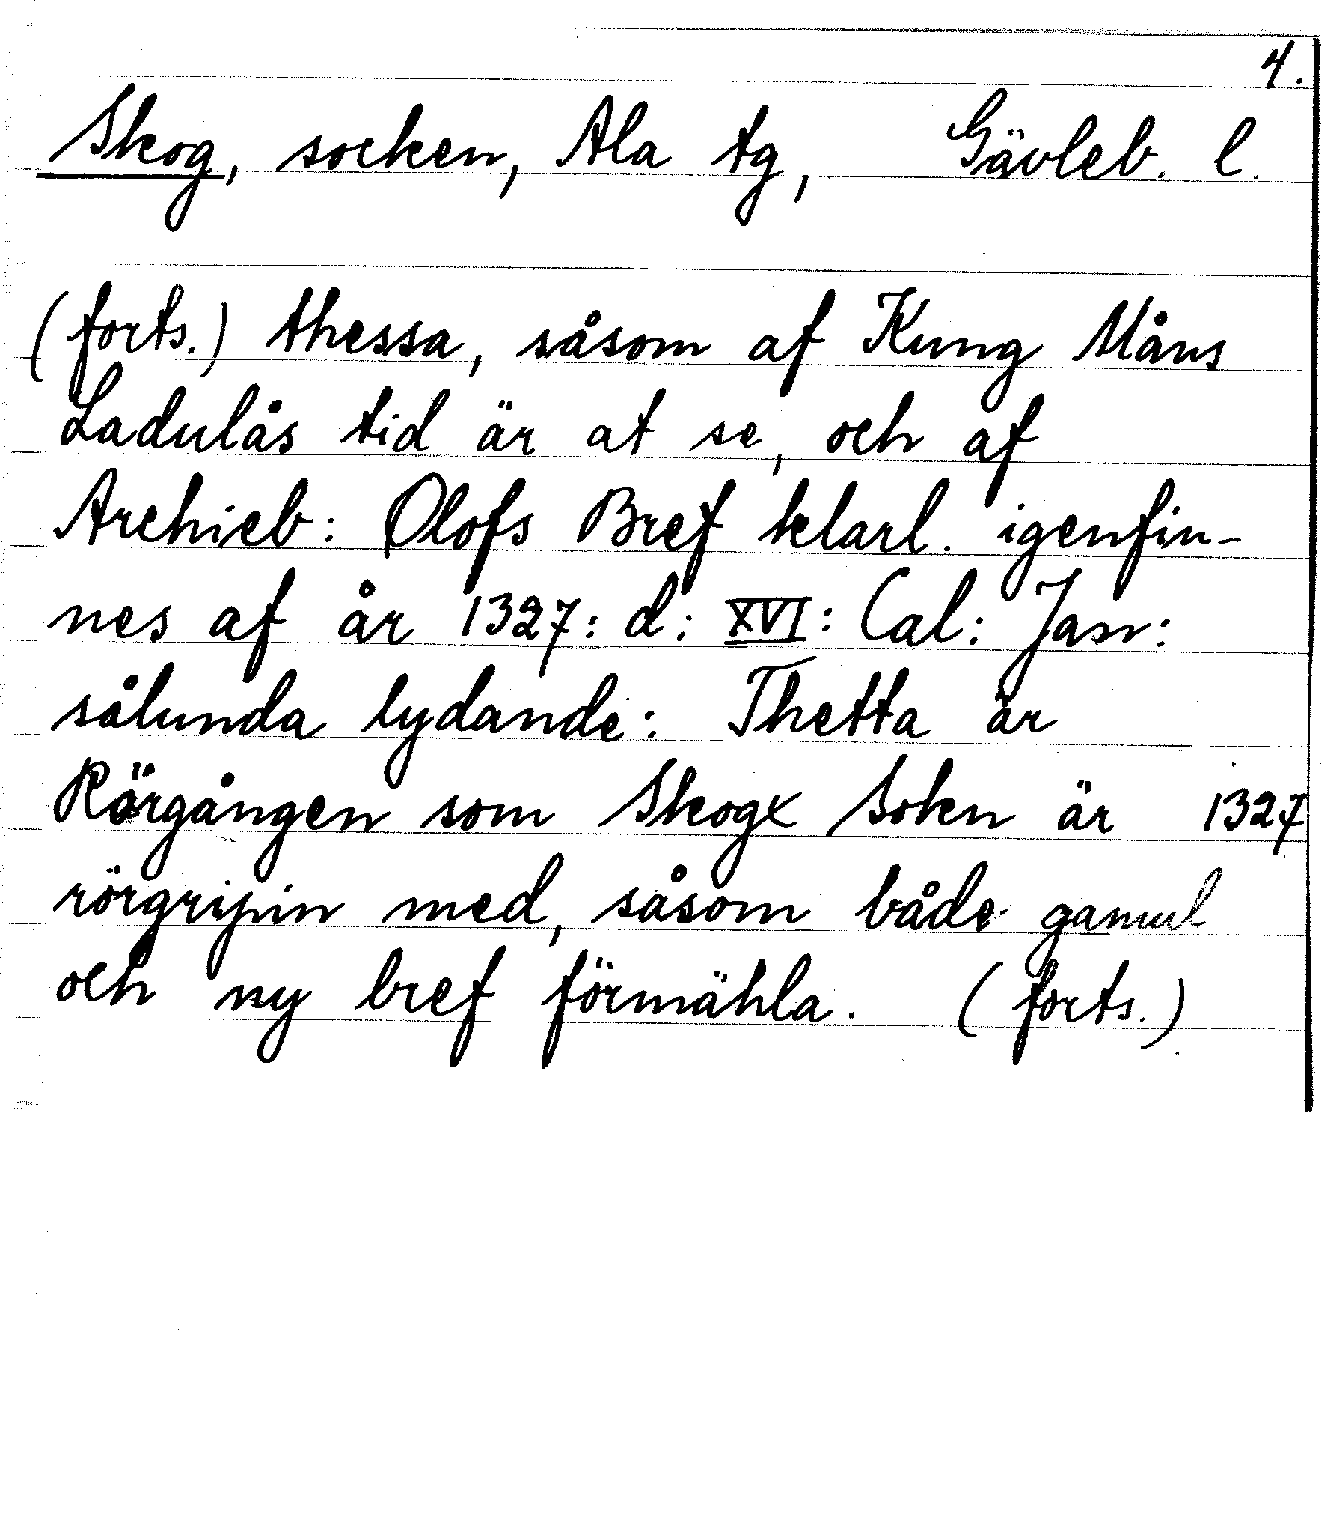 4.
Skog, socken, Ala tg, Gävleb. l.
(forts.) thessa, såsom af Kung Måns
Ladulås tid är at se, och af
Archieb: Olofs Bref klarl. igenfin-
nes af år 1327: d: XVI: Cal: Jan:
sålunda lydande: Thetta är
Rörgången som Skogx Sokn är 1327
rörgripin med, såsom både gamul
och ny bref förmähla. (forts.)